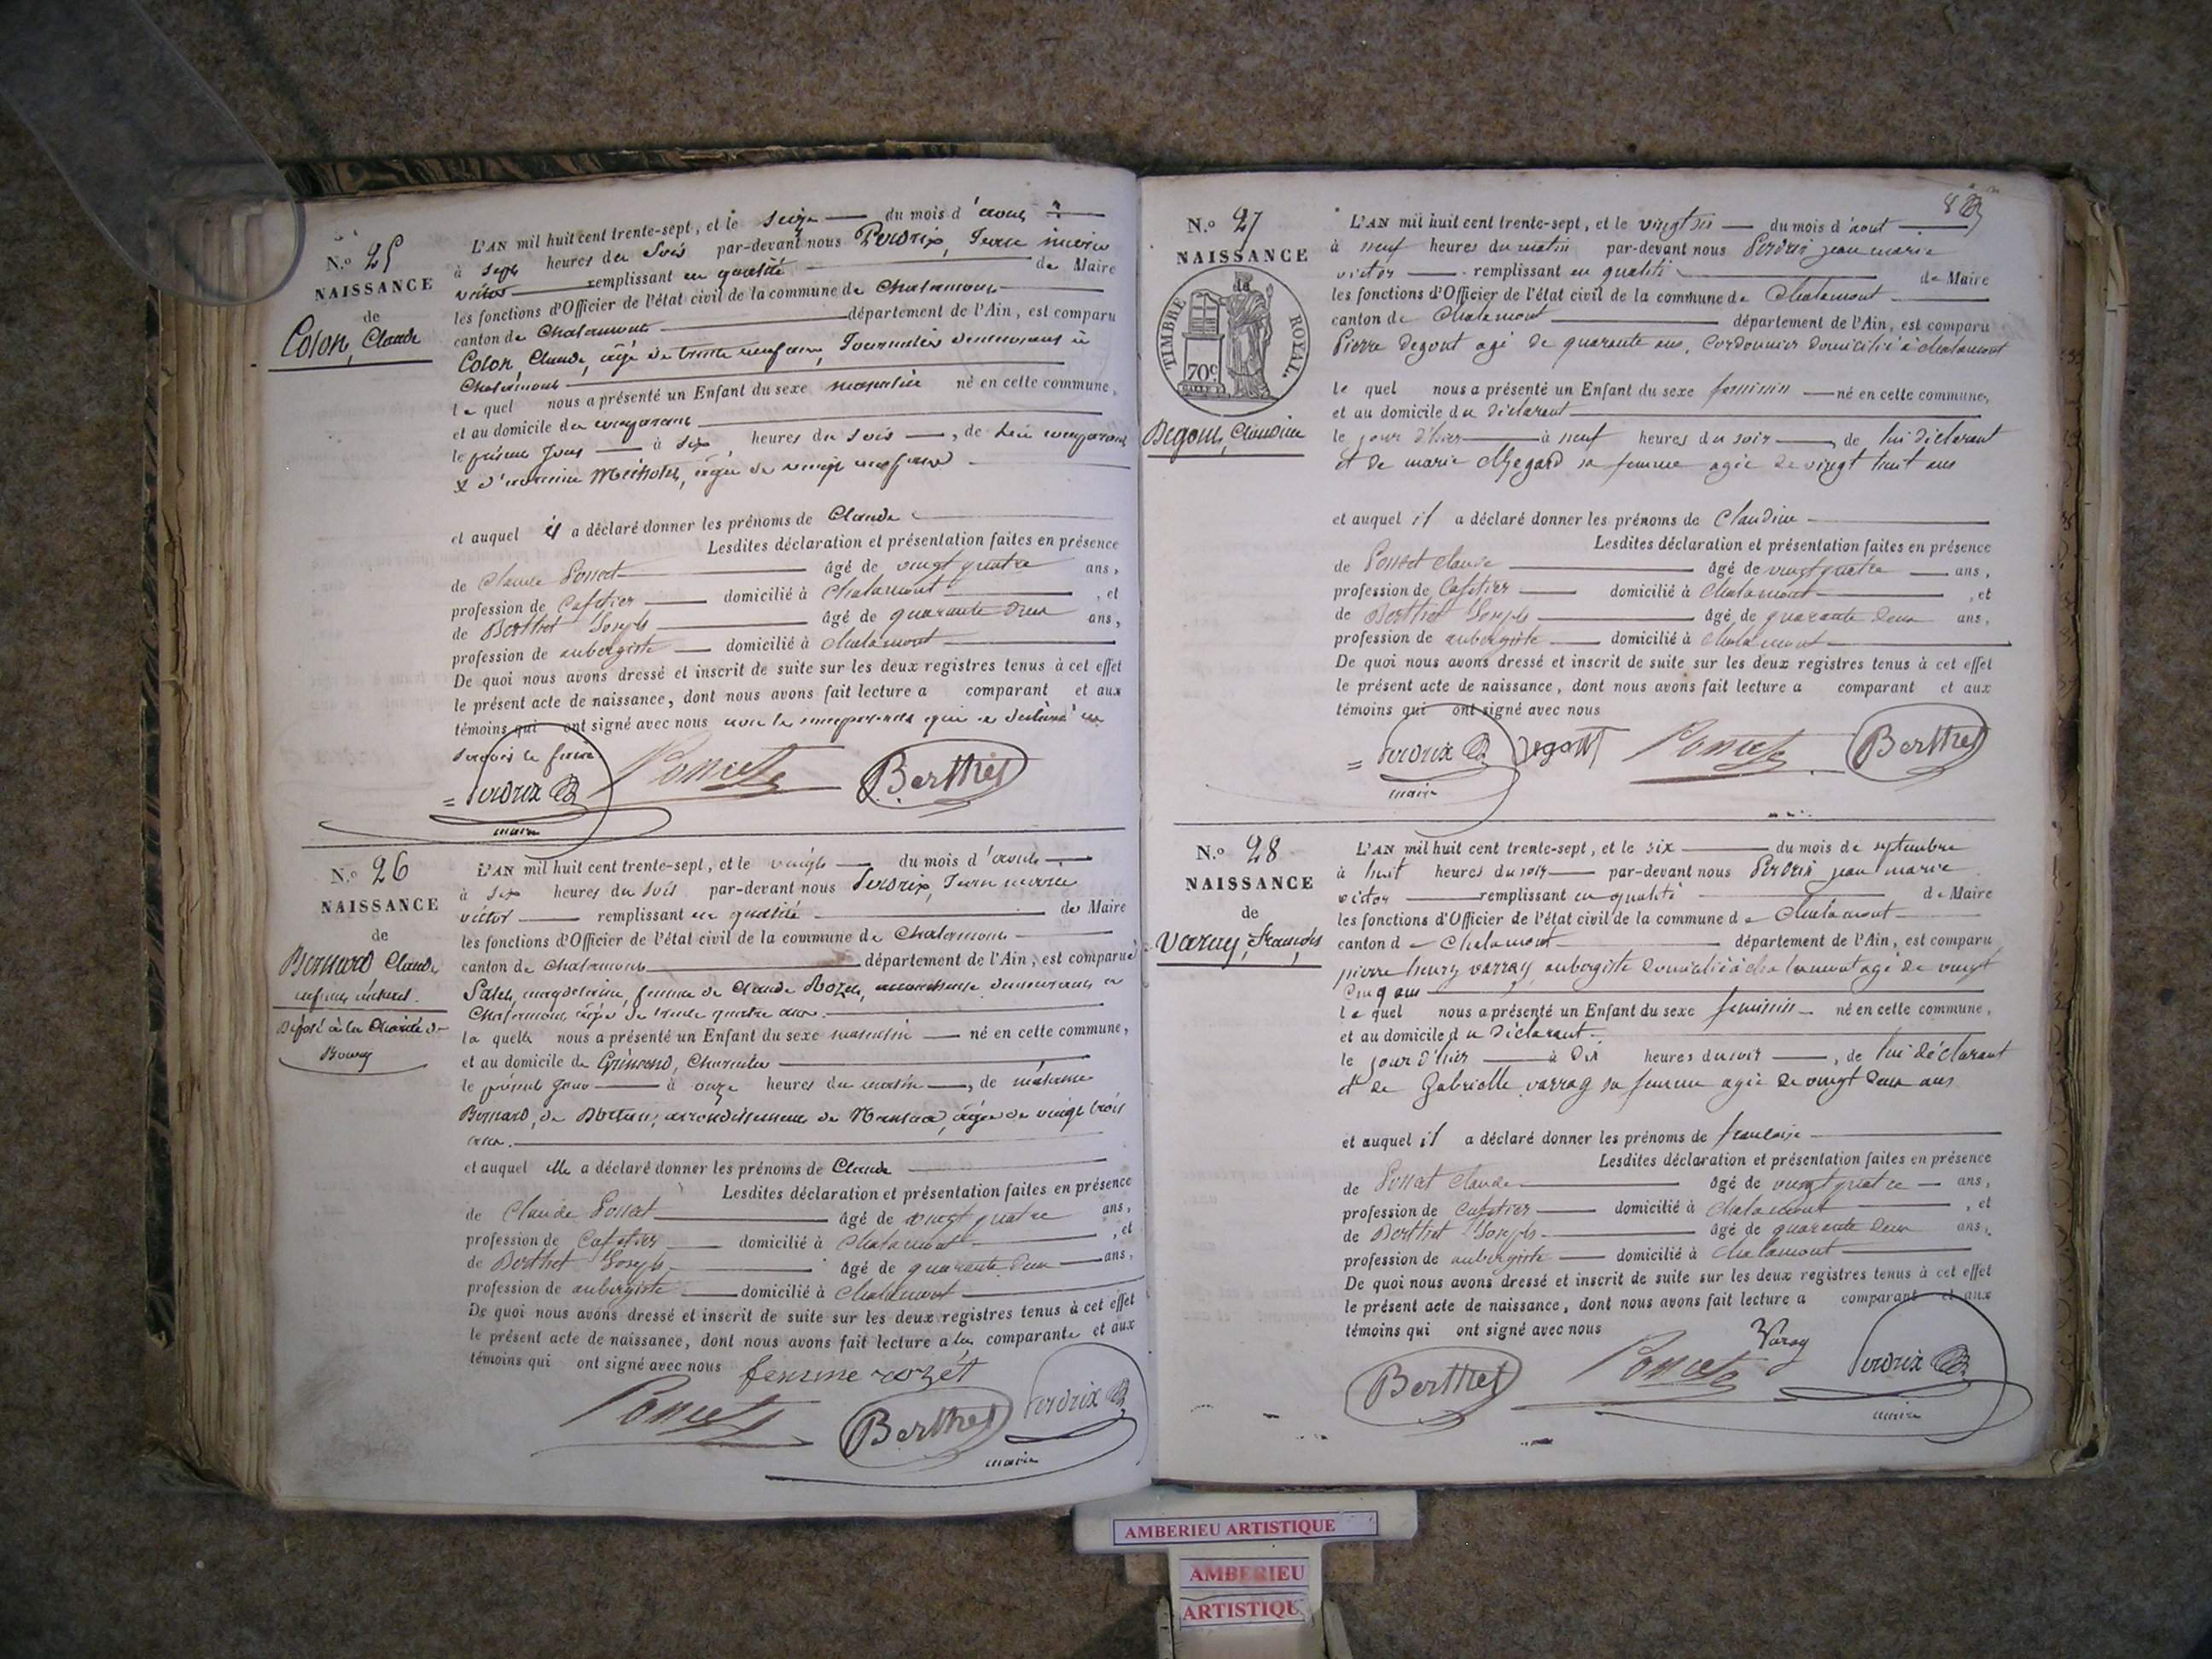 N.º 25
NAISSANCE
de
Colon, Claude
L'AN mil huit cent trente-sept, et le seize du mois d'août
à sept heures du soir par-devant nous Perdrix, Jean marie
victor remplissant en qualité de Maire
les fonctions d'Officier de l'état civil de la commune de Chalamont
canton de Chalamont département de l'Ain, est comparu
Colon, Claude, âgé de trente neuf ans, Journalier demeurant à
Chalamont
le quel nous a présenté un Enfant du sexe masculin né en cette commune,
et au domicile du comparant
le présent jour à six heures du soir, de lui comparant
& d' Michon, âgée de vingt neuf ans
et auquel il a déclaré donner les prénoms de Claude
Lesdites déclaration et présentation faites en présence
de Claude Poncet âgé de vingt quatre ans,
profession de Cafetier domicilié à Chalamont, et
de Berthet Joseph âgé de quarante deux ans,
profession de aubergiste domicilié à chalamont
De quoi nous avons dressé et inscrit de suite sur les deux registres tenus à cet effet
le présent acte de naissance, dont nous avons fait lecture a comparant et aux
témoins qui ont signé avec nous non le comparant qui a déclaré ne
savoir le faire
Perdrix Poncet Berthet
maire
N.º 26
NAISSANCE
de
Bernard Claude
enfant naturel.
Déposé à la Charité de
Bourg
L'AN mil huit cent trente-sept, et le vingt du mois d'août
à six heures du soir par-devant nous Perdrix, Jean marie
victor remplissant en qualité de Maire
les fonctions d'Officier de l'état civil de la commune de Chalamont
canton de Chalamont département de l'Ain, est comparue
magdelaine, femme de Claude Rozet, accoucheuse demeurant à
Chalamont âgée de trente quatre ans.
la quelle nous a présenté un Enfant du sexe masculin né en cette commune,
et au domicile de Grimand, Charpentier
le présent jour à onze heures du matin, de
Bernard, de Dortan, arrondissement de Nantua, âgée de vingt trois
ans.
et auquel elle a déclaré donner les prénoms de Claude
Lesdites déclaration et présentation faites en présence
de Claude Poncet âgé de vingt quatre ans,
profession de Cafetier domicilié à Chalamont, et
de Berthet Joseph âgé de quarante deux ans,
profession de aubergiste domicilié à Chalamont
De quoi nous avons dressé et inscrit de suite sur les deux registres tenus à cet effet
le présent acte de naissance, dont nous avons fait lecture a la comparante et aux
témoins qui ont signé avec nous femme rozet
Poncet Berthet Perdrix
maire
N.º 27
NAISSANCE
TIMBRE ROYAL.
70c
Degout, Claudine
L'AN mil huit cent trente-sept, et le vingt six du mois d'aout
à neuf heures du matin par-devant nous Perdrix jean marie
victor remplissant en qualité de Maire
les fonctions d'Officier de l'état civil de la commune de Chalamont
canton de Chalamont département de l'Ain, est comparu
Pierre degout agé de quarante ans, Cordonnier domicilié à chalamont
le quel nous a présenté un Enfant du sexe feminin né en cette commune,
et au domicile du déclarant
le jour d'hier à neuf heures du soir, de lui déclarant
et de marie Megard sa femme agée de vingt huit ans
et auquel il a déclaré donner les prénoms de Claudine
Lesdites déclaration et présentation faites en présence
de Poncet Claude âgé de vingt quatre ans,
profession de Cafetier domicilié à Chalamont, et
de Berthet Joseph âgé de quarante deux ans,
profession de aubergiste domicilié à Chalamont
De quoi nous avons dressé et inscrit de suite sur les deux registres tenus à cet effet
le présent acte de naissance, dont nous avons fait lecture a comparant et aux
témoins qui ont signé avec nous
Perdrix Degout Poncet Berthet
maire
N.º 28
NAISSANCE
de
Varay, François
L'AN mil huit cent trente-sept, et le six du mois de septembre
à huit heures du soir par-devant nous Perdrix jean marie
victor remplissant en qualité de Maire
les fonctions d'Officier de l'état civil de la commune de Chalamont
canton de Chalamont département de l'Ain, est comparu
pierre henry varray, aubergiste domicilié à chalamont agé de vingt
Cinq ans
le quel nous a présenté un Enfant du sexe feminin né en cette commune,
et au domicile du déclarant
le jour d'hier à dix heures du soir, de lui déclarant
et de Gabrielle varray sa femme agée de vingt deux ans
et auquel il a déclaré donner les prénoms de francoise
Lesdites déclaration et présentation faites en présence
de Poncet Claude âgé de vingt quatre ans,
profession de Cafetier domicilié à Chalamont, et
de Berthet Joseph âgé de quarante deux ans,
profession de aubergiste domicilié à Chalamont
De quoi nous avons dressé et inscrit de suite sur les deux registres tenus à cet effet
le présent acte de naissance, dont nous avons fait lecture a comparant et aux
témoins qui ont signé avec nous
Varay
Berthet Poncet Perdrix
maire
AMBERIEU ARTISTIQUE
AMBERIEU
ARTISTIQU